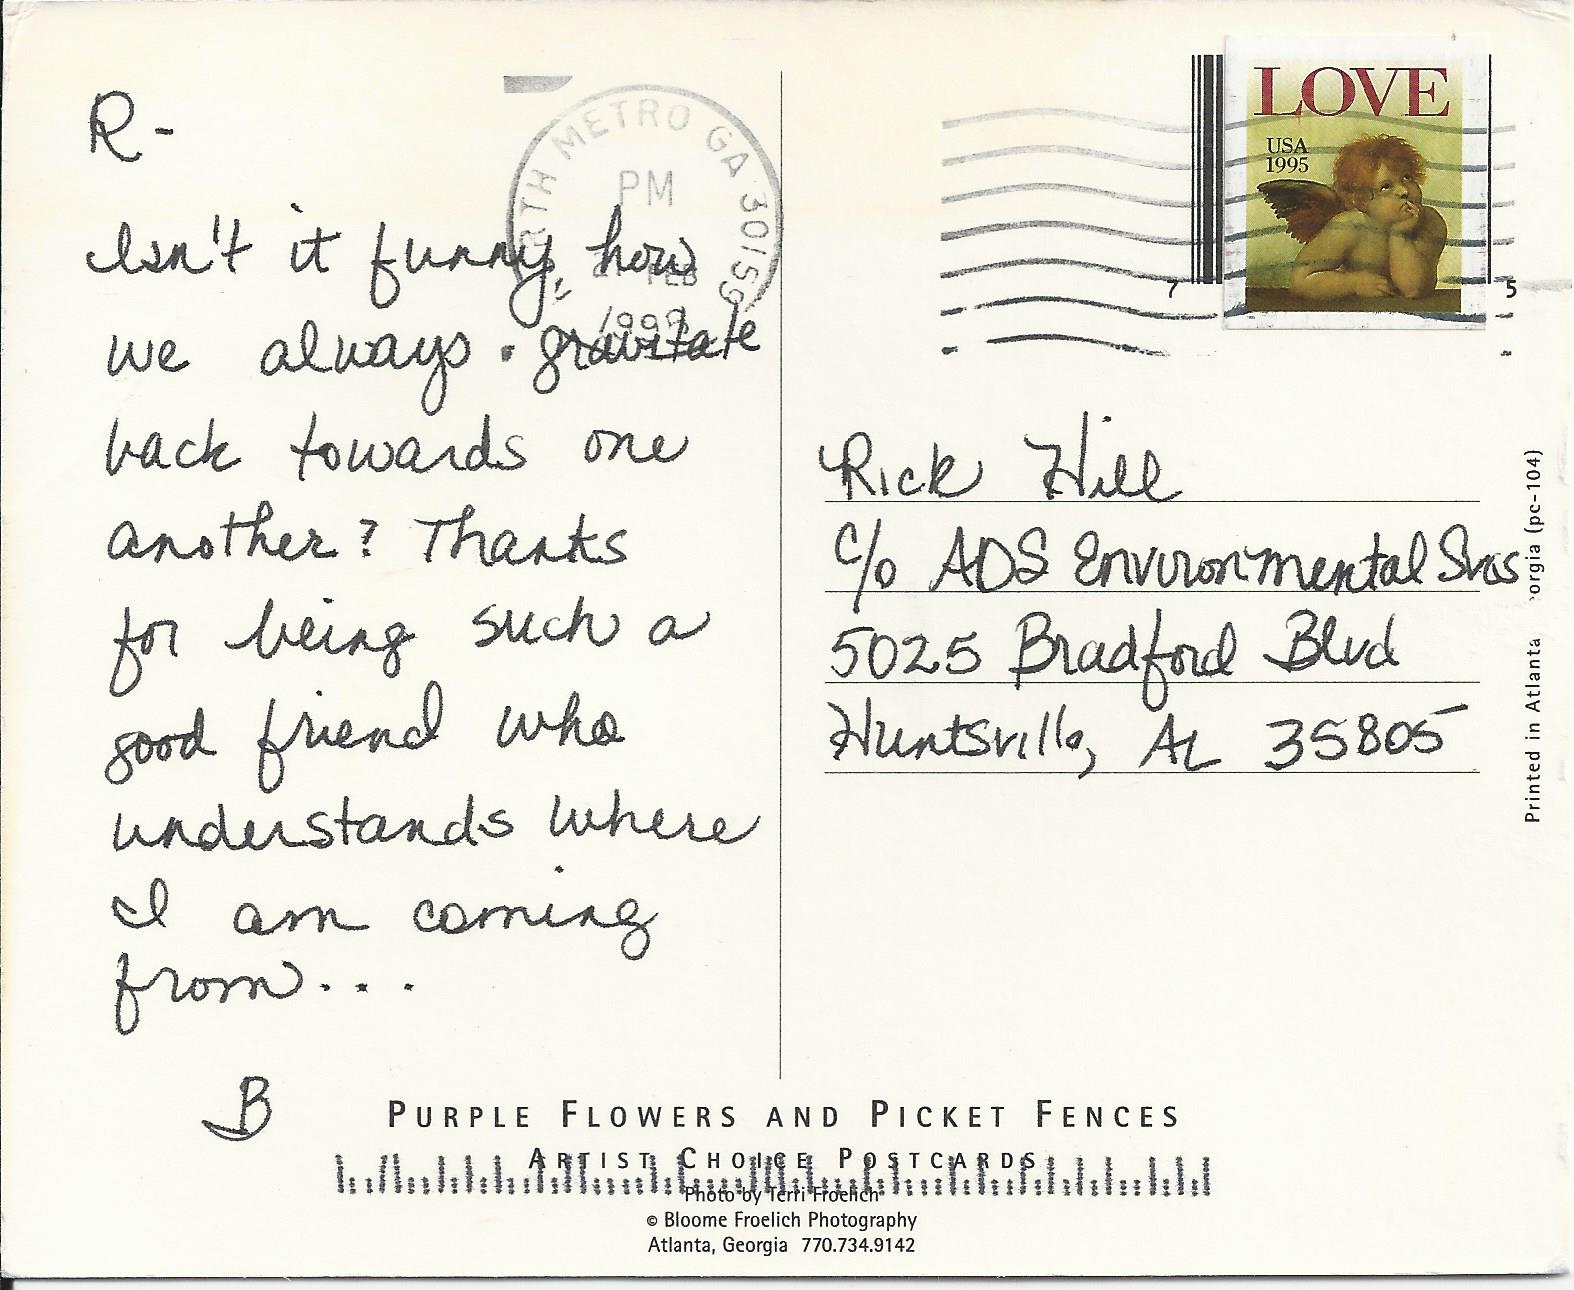 R-
Isn't it funny, how
we always . gravitate
back towards one
another? Thanks
for being such a
good friend who
understands where
I am coming
from...
B
RTH METRO GA 30159
PM
FEB
LOVE
USA
1995
7 5
Rick Hill
c/o ADS Environmental Svcs
5025 Bradford Blvd
Huntsville, AL 35805
Printed in Atlanta orgia (pc-104)
PURPLE FLOWERS AND PICKET FENCES
ARTIST CHOICE POSTCARDS
Photo by Terri Froelich
© Bloome Froelich Photography
Atlanta, Georgia 770.734.9142